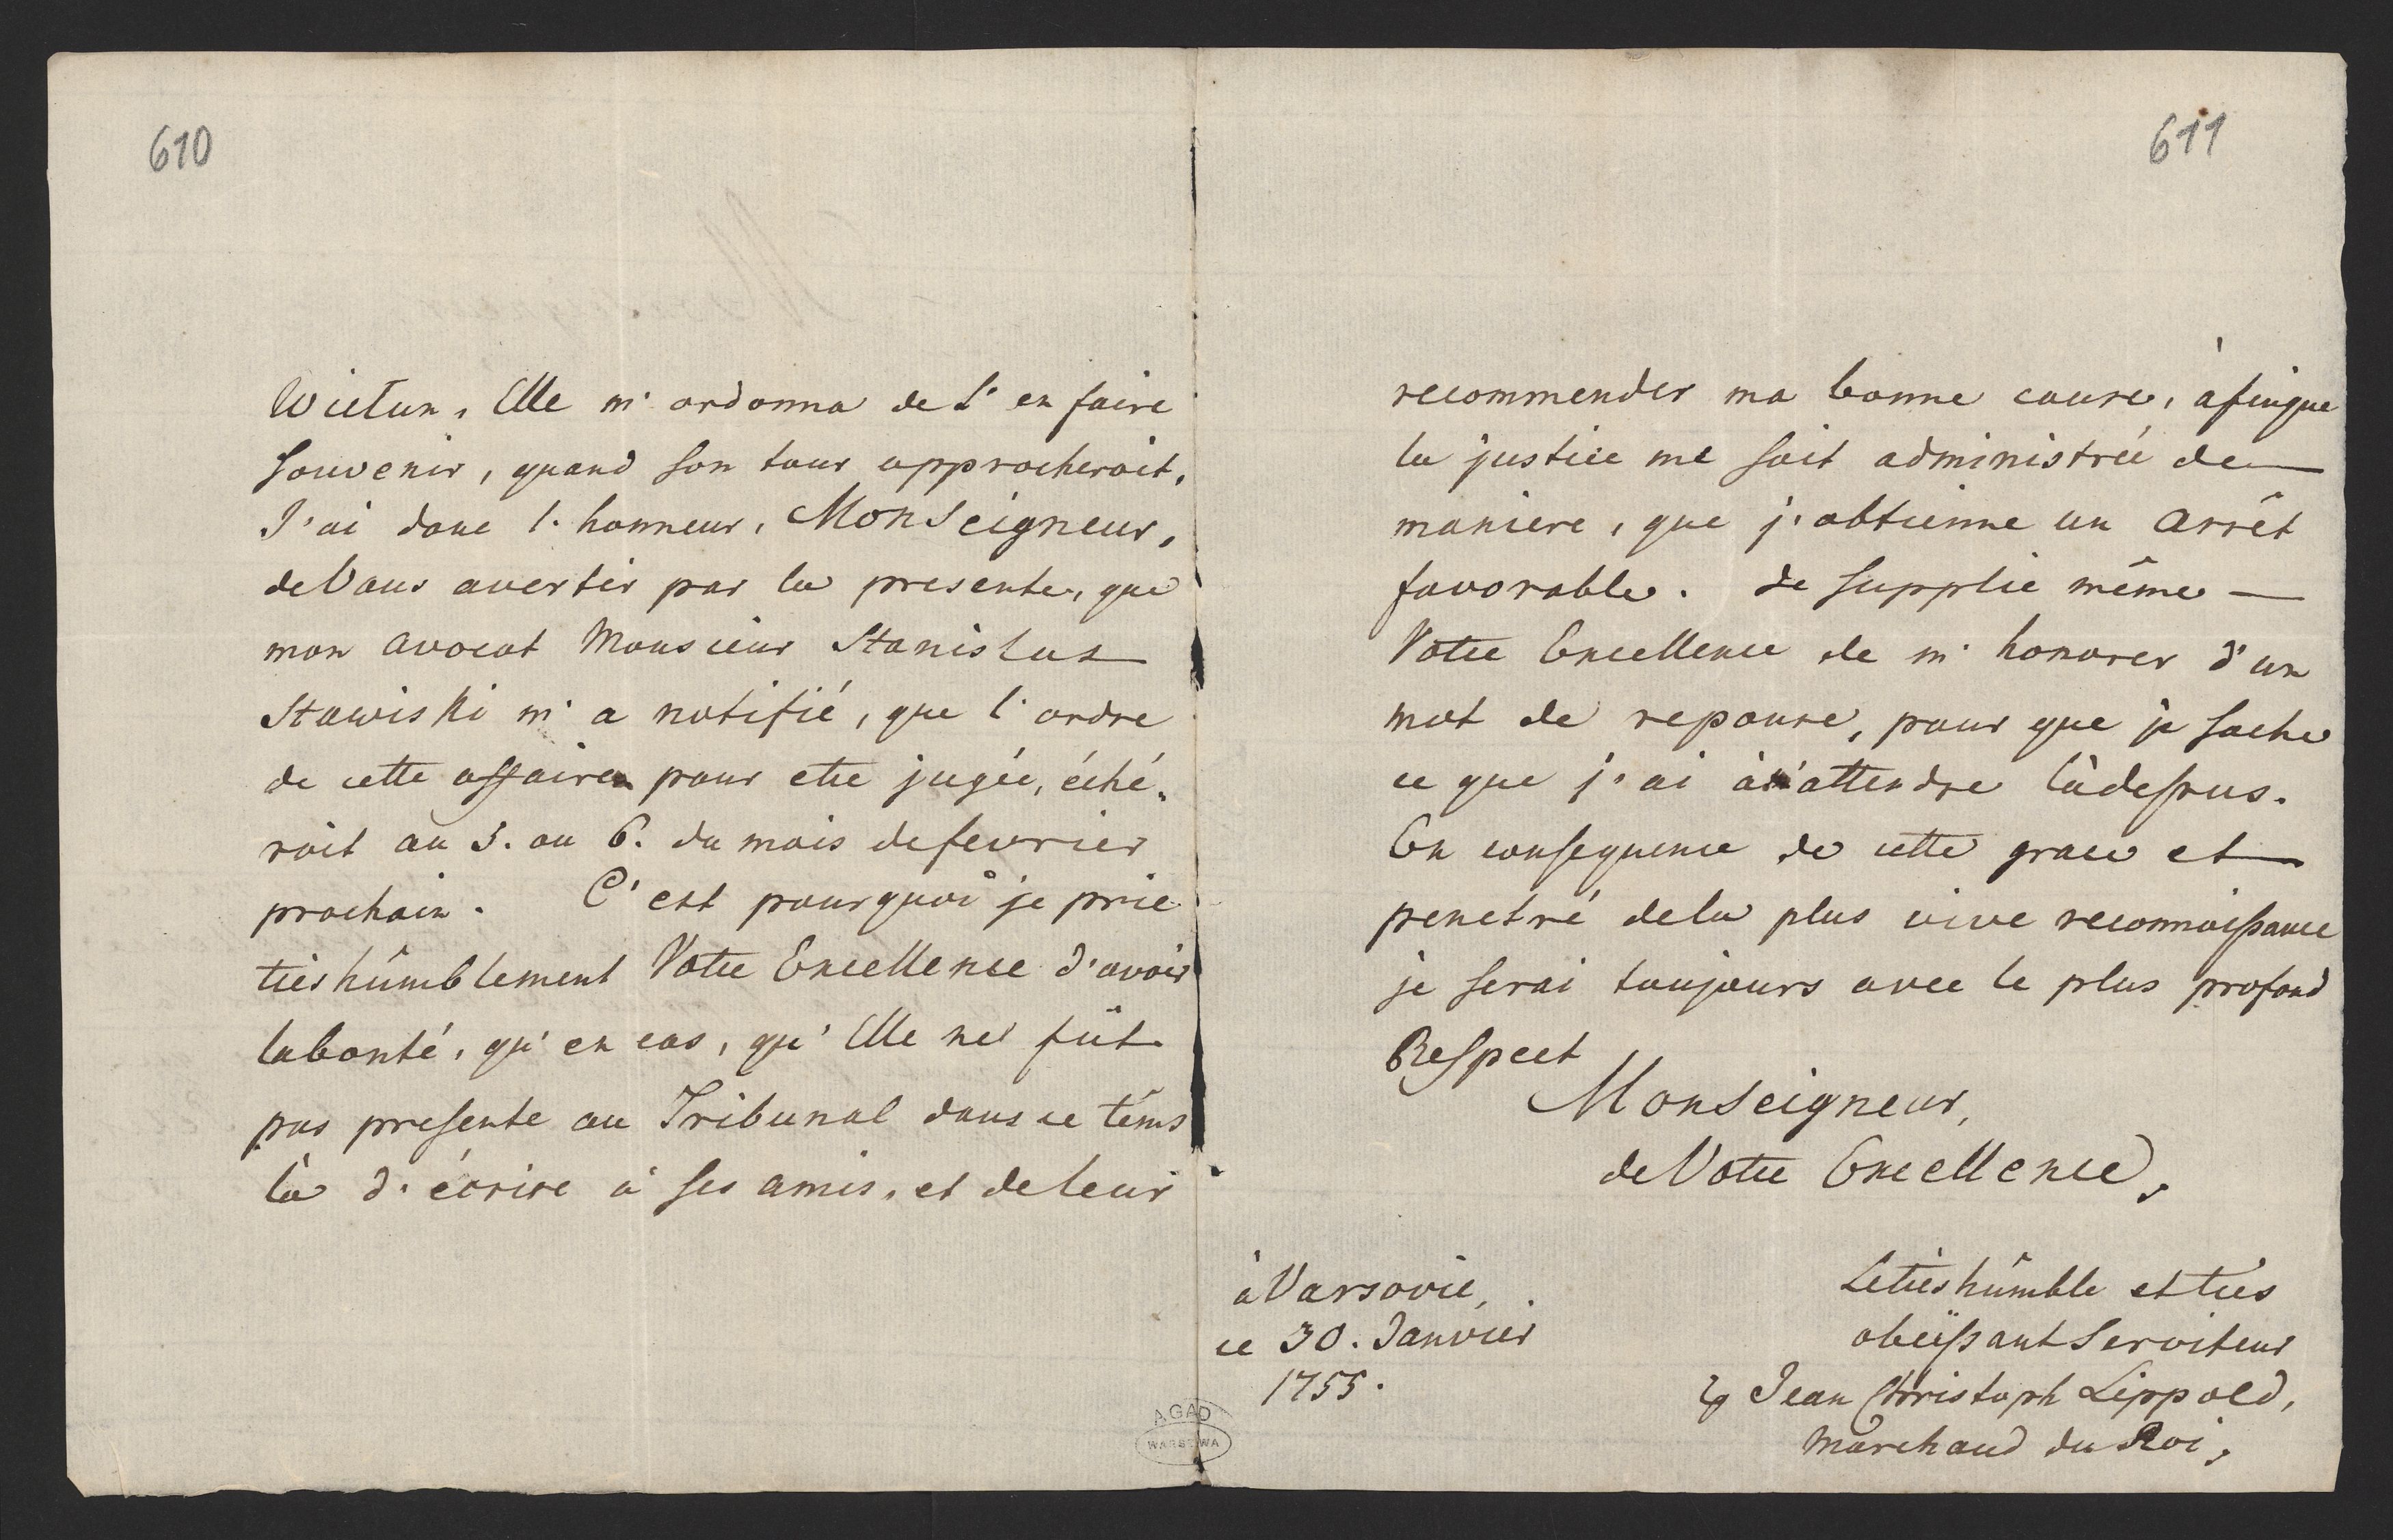 610
Wictun, Elle m'ordonna de L'en faire
souvenir, quand son tour approcheroit,
J'ai donc l'honneur, Monseigneur,
de Vous avertir par la presente, que
mon avocat Monsieur Stanislas
Stawiski m'a notifié, que l'ordre
de cette affaire pour etre jugée, éché-
roit au 5. ou 6. du mois de fevrier
prochain. C'est pourquoi je prie
très hûmblement Votre Excellence d'avoir
la bonté, qu'en cas, qu'Elle ne fût
pas presente au Tribunal dans ce têms
là d'écrire à ses amis, et de leur
611
recommender ma bonne cause, àfinque
la justice me soit administrée de
maniere, que j'obtienne un Arrêt
favorable. Je supplie même
Votre Excellence de m'honorer d'un
mot de reponse, pour que je sache
ce que j'ai à m'attendre làdessus.
En consequence de cette grace et
penetré de la plus vive reconnoissance
je serai toujours avec le plus profond
Respect
Monseigneur,
de Votre Excellence,
à Varsovie,
ce 30. Janvier
1755.
Le très hûmble et très
obeïssant Serviteur
Jean Christoph Lippold,
Marchand du Roi,
AGAD
WARSZAWA